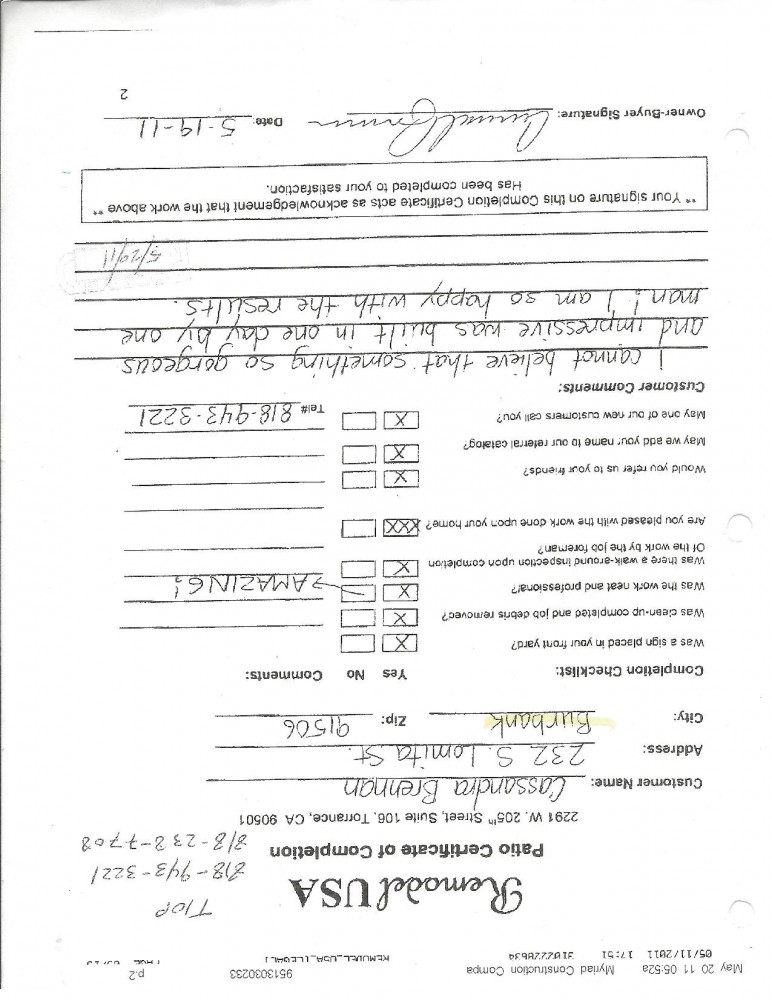 May 20 11 05:52a Myriad Construction Compa 9513030233 p.2
05/11/2011 17:51 3102228634 REMODEL_USA_(LEGAL)
Remodel USA
818-943-3221
Patio Certificate of Completion
818-238-7708
2291 W. 205th Street, Suite 106, Torrance, CA 90501
Customer Name: Cassandra Brennan
Address: 232 S. Lomita St.
City: Burbank Zip: 91506
Completion Checklist: Yes No Comments:
Was a sign placed in your front yard? X
Was clean-up completed and job debris removed? X
Was the work neat and professional? X >AMAZING!
Was there a walk-around inspection upon completion X
Of the work by the job foreman?
Are you pleased with the work done upon your home? XXX
Would you refer us to your friends? X
May we add your name to our referral catalog? X
May one of our new customers call you? X Tel# 818-943-3221
Customer Comments:
I cannot believe that something so gorgeous
and impressive was built in one day by one
man! I am so happy with the results.
5/20/11
** Your signature on this Completion Certificate acts as acknowledgement that the work above **
Has been completed to your satisfaction.
Owner-Buyer Signature: Date: 5-19-11
2